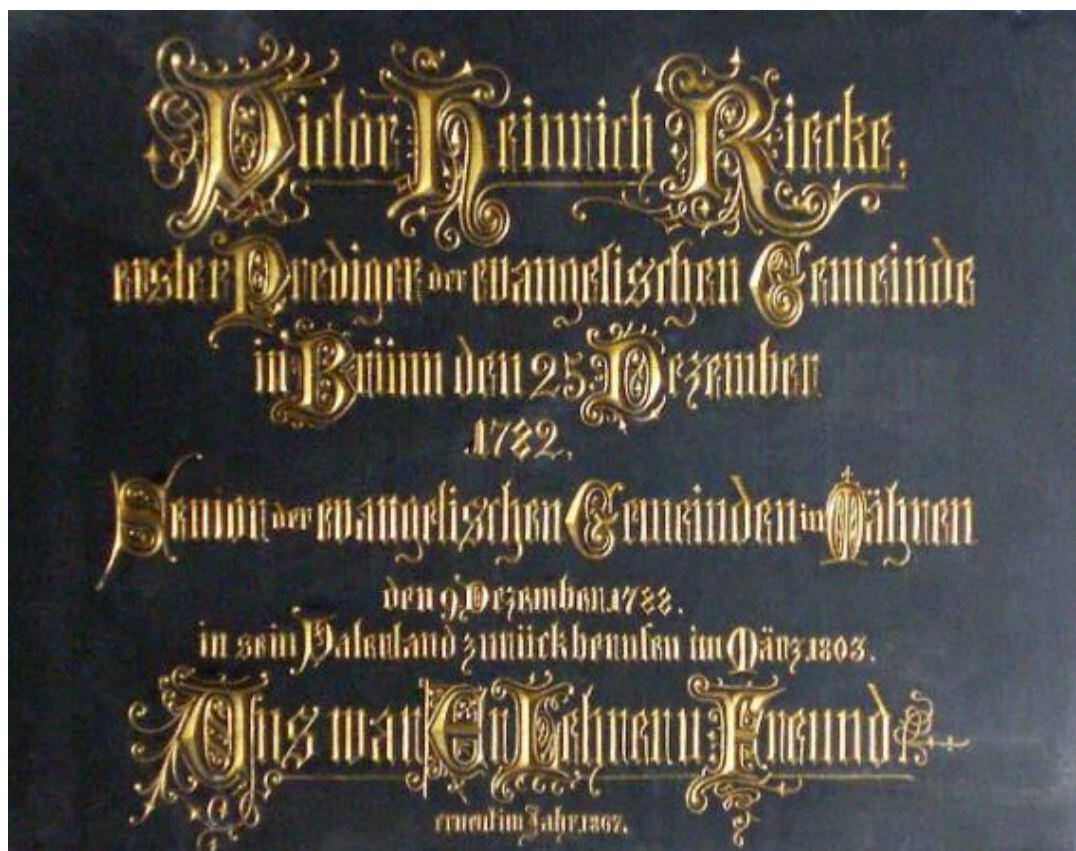 Victor Heinrich Riecke,
erster Prediger der evangelischen Gemeinde
in Brünn den 25. Dezember
1782.
Senior der evangelischen Gemeinden in Mähren
den 9. Dezember 1788.
in sein Vaterland zurückberufen im März 1803.
Uns war Er Lehrer u Freund.
erneut im Jahr 1867.